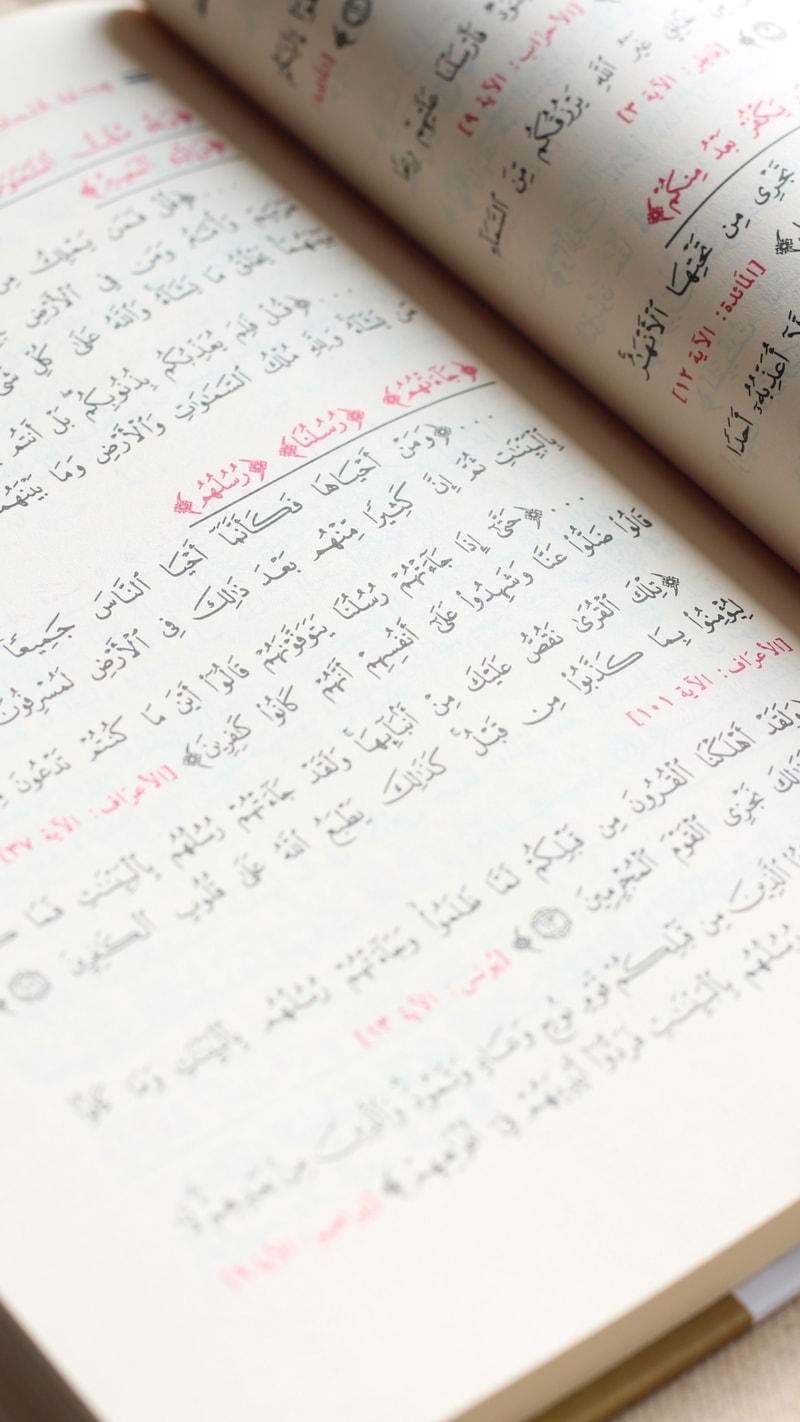 فَأَرْسَلْنَا عَلَيْهِمْ رِيحًا
[الأحزاب: الآية ٩]
غَيْرُ ٱللَّهِ يَرْزُقُكُم مِّنَ ٱلسَّمَآءِ
[فاطر: الآية ٣]
يَكْفُرْ بَعْدُ مِنكُمْ﴾
تَجْرِى مِن تَحْتِهَا ٱلْأَنْهَـٰرُ
[المائدة: الآية ١٢]
أُعَذِّبُهُۥٓ أَحَدًا
... ﴿قُلْ فَمَن يَمْلِكُ مِنَ
وَأُمَّهُۥ وَمَن فِى ٱلْأَرْضِ
بَيْنَهُمَا يَخْلُقُ مَا يَشَآءُ وَٱللَّهُ عَلَىٰ كُلِّ
... ﴿قُلْ فَلِمَ يُعَذِّبُكُم بِذُنُوبِكُم بَلْ أَنتُم
مَن يَشَآءُ وَلِلَّهِ مُلْكُ ٱلسَّمَـٰوَٰتِ وَٱلْأَرْضِ وَمَا بَيْنَهُمَا
﴿جَآءَتْهُمْ﴾ ﴿رُسُلُنَا﴾ ﴿رُسُلُهُم﴾
... ﴿وَمَنْ أَحْيَاهَا فَكَأَنَّمَآ أَحْيَا ٱلنَّاسَ جَمِيعًا
بِٱلْبَيِّنَـٰتِ ثُمَّ إِنَّ كَثِيرًا مِّنْهُم بَعْدَ ذَٰلِكَ فِى ٱلْأَرْضِ لَمُسْرِفُونَ
... ﴿حَتَّىٰٓ إِذَا جَآءَتْهُمْ رُسُلُنَا يَتَوَفَّوْنَهُمْ قَالُوٓا۟ أَيْنَ مَا كُنتُمْ تَدْعُونَ
قَالُوا۟ ضَلُّوا۟ عَنَّا وَشَهِدُوا۟ عَلَىٰٓ أَنفُسِهِمْ أَنَّهُمْ كَانُوا۟ كَـٰفِرِينَ﴾ [الأعراف: الآية ٣٧]
﴿تِلْكَ ٱلْقُرَىٰ نَقُصُّ عَلَيْكَ مِنْ أَنۢبَآئِهَا وَلَقَدْ جَآءَتْهُمْ رُسُلُهُم بِٱلْبَيِّنَـٰتِ فَمَا
لِيُؤْمِنُوا۟ بِمَا كَذَّبُوا۟ مِن قَبْلُ كَذَٰلِكَ يَطْبَعُ ٱللَّهُ عَلَىٰ قُلُوبِ ٱلْكَـٰفِرِينَ
[الأعراف: الآية ١٠١]
﴿وَلَقَدْ أَهْلَكْنَا ٱلْقُرُونَ مِن قَبْلِكُمْ لَمَّا ظَلَمُوا۟ وَجَآءَتْهُمْ رُسُلُهُم بِٱلْبَيِّنَـٰتِ وَمَا كَانُوا۟
كَذَٰلِكَ نَجْزِى ٱلْقَوْمَ ٱلْمُجْرِمِينَ ﴾ [يونس: الآية ١٣]
ٱلَّذِينَ مِن قَبْلِكُمْ قَوْمِ نُوحٍ وَعَادٍ وَثَمُودَ وَٱلَّذِينَ مِنۢ بَعْدِهِمْ لَا
رُسُلُهُم بِٱلْبَيِّنَـٰتِ فَرَدُّوٓا۟ أَيْدِيَهُمْ فِىٓ أَفْوَٰهِهِمْ﴾ [إبراهيم: الآية ٩]